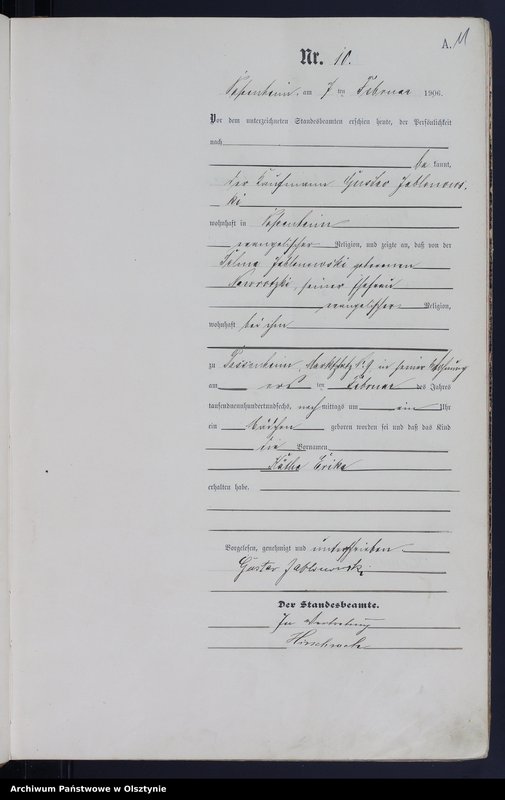 A. 11
Nr. 10.
Passenheim, am 7 ten Februar 1906.
Vor dem unterzeichneten Standesbeamten erschien heute, der Persönlichkeit
nach
be kannt,
der Kaufmann Gustav Jablonows-
ki
wohnhaft in Passenheim
evangelischer Religion, und zeigte an, daß von der
Jablonowski geborenen
seiner Ehefrau
evangelischer Religion,
wohnhaft bei ihm
zu Passenheim, Marktplatz No 9, in seiner Wohnung
am ten Februar des Jahres
tausendneunhundertundsechs, nachmittags um ein Uhr
ein Mädchen geboren worden sei und daß das Kind
die Vornamen
Käthe Erika
erhalten habe.
Vorgelesen, genehmigt und unterschrieben
Gustav Jablonowski
Der Standesbeamte.
In Vertretung
Archiwum Państwowe w Olsztynie